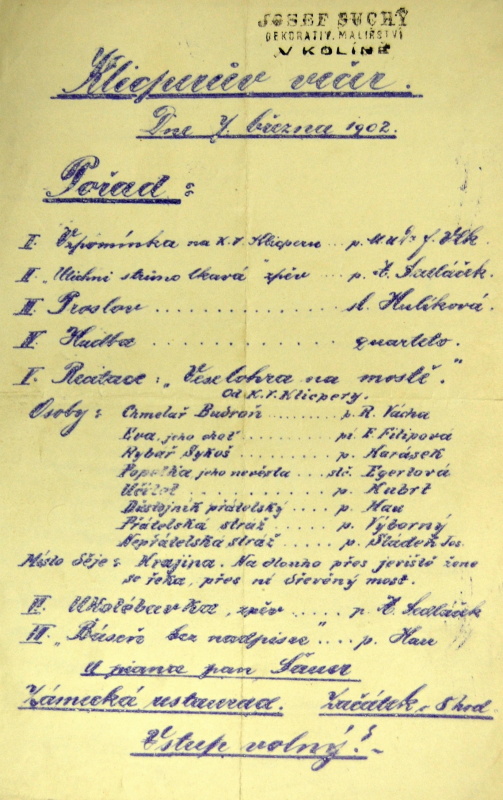 JOSEF SUCHÝ
DEKORATIV. MALÍŘSTVÍ
V KOLÍNĚ
Kliperův večer.
Dne 7. března 1902.
Pořad:
Vzpomínka na K. V. Klicperu p. f. Vlk
II. zpěv p. A. Sedláček.
III. Proslov .......... sl. Hulíková.
IV. Hudba .......... quarteto.
V. Recitace: „Veselohra na mostě."
Od K. V. Klicpery.
Osoby: Chmelař Budroň ....... p. R. Vácha
Eva, jeho choť ....... pí E. Filipová
Rybář Sykoš ....... p. Karásek
Popelka jeho nevěsta ... slč. Egertová
Učitel ....... p. Kubrt
Důstojník přátelský .... p. Hau
Přátelská stráž ..... p. Výborný
Nepřátelská stráž ..... p. Sládek Jos.
Místo děje: Krajina. Na dlouho přes jeviště žene
se řeka, přes ni dřevěný most.
VI. Ukolébavka, zpěv ..... p. A. Sedláček
VII. „Báseň bez nadpisu" .... p. Hau
U piana pan Šauer
Zámecká restaurad. Začátek 8 hod.
Vstup volný!